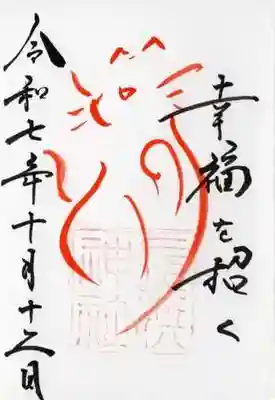 幸福を招く
令和七年十月十二日
神社